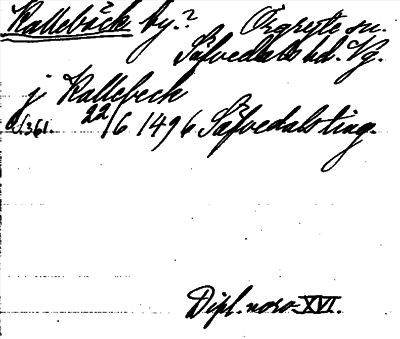 Kallebäck by.? Örgryte sn.
Säfvedals hd. Vg.
j Kallebeck
22/6 1496 Säfvedalsting.
s. 361.
Dipl. norv. XVI.